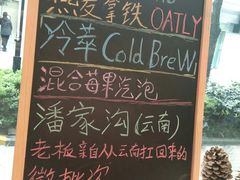 燕麦拿铁 OATLY
冷萃 Cold BreW
混合莓果汽泡
潘家沟(云南)
老板亲自从云南扛回来的
微批次